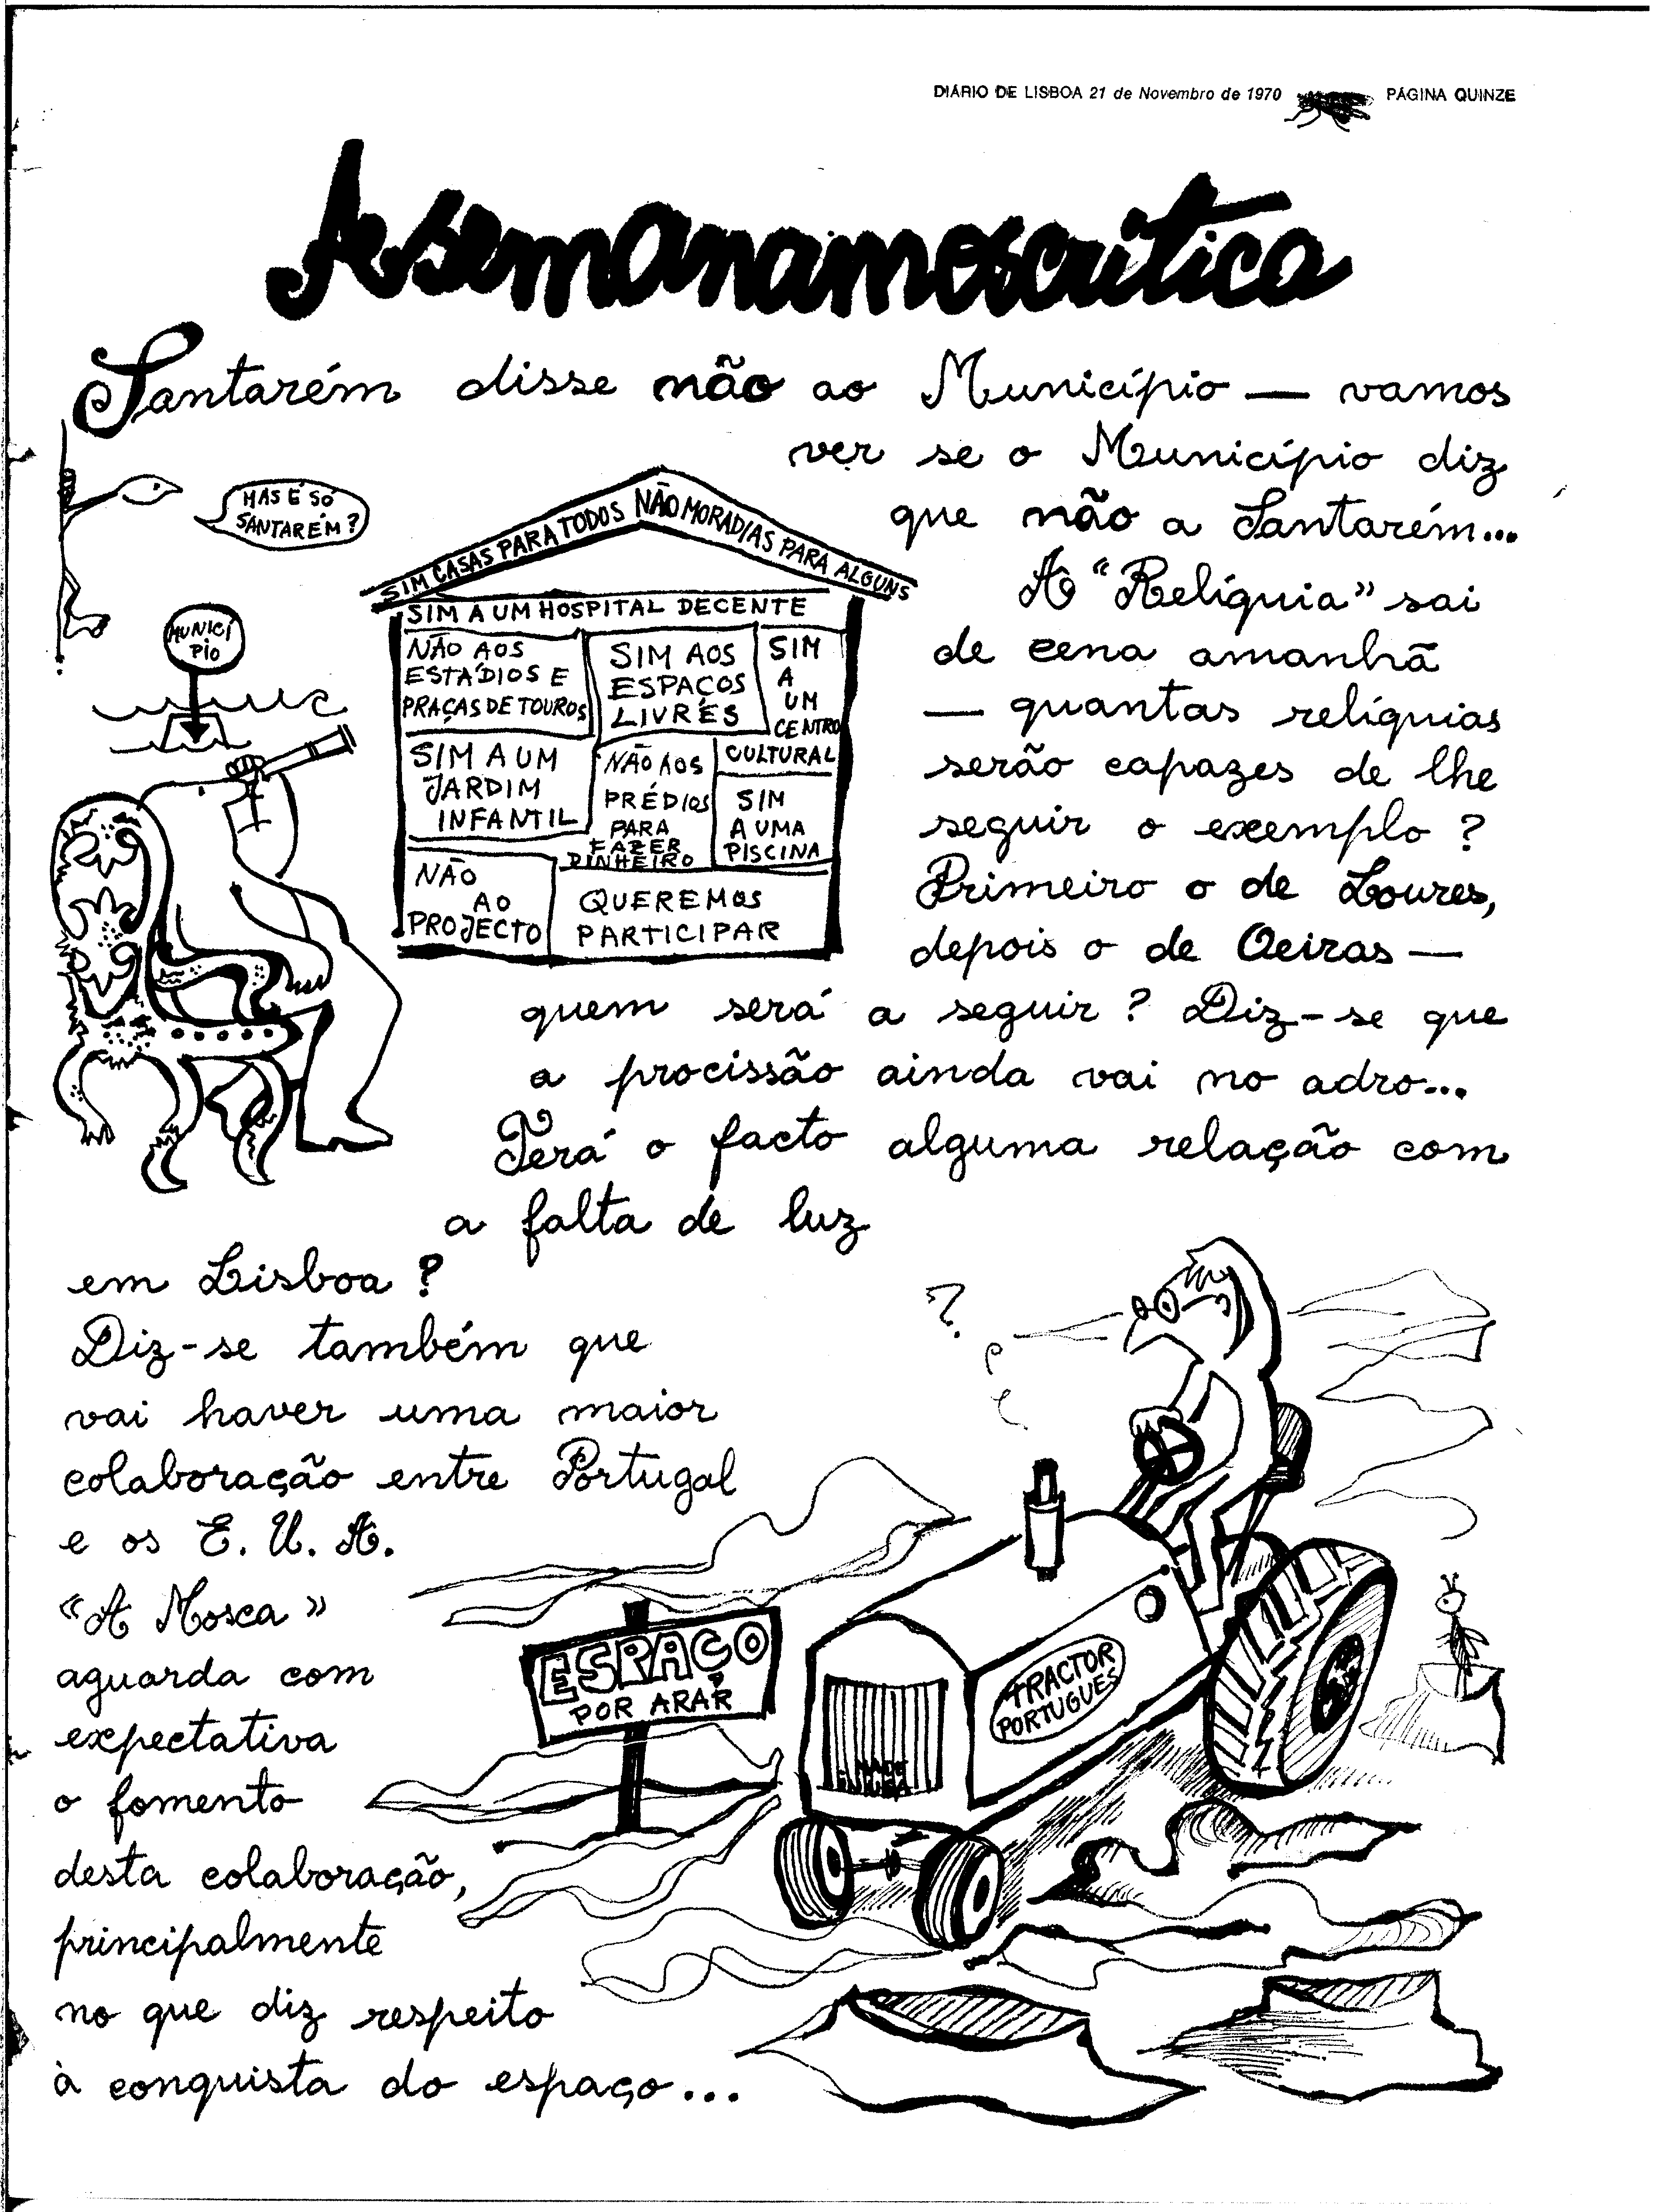 DIÁRIO DE LISBOA 21 de Novembro de 1970 PÁGINA QUINZE
A semanamoscrítica
Santarém disse não ao Município — vamos
ver se o Município diz
que não a Santarém...
MAS É SÓ
SANTARÉM?
MUNICÍ
PIO
SIM CASAS PARA TODOS NÃO MORADIAS PARA ALGUNS
SIM A UM HOSPITAL DECENTE
NÃO AOS
ESTÁDIOS E
PRAÇAS DE TOUROS
SIM AOS
ESPAÇOS
LIVRES
SIM
A
UM
CENTRO
CULTURAL
SIM A UM
JARDIM
INFANTIL
NÃO AOS
PRÉDIOS
PARA
FAZER
DINHEIRO
SIM
A UMA
PISCINA
NÃO
AO
PROJECTO
QUEREMOS
PARTICIPAR
A "Relíquia" sai
de cena amanhã
— quantas relíquias
serão capazes de lhe
seguir o exemplo?
Primeiro o de Loures,
depois o de Oeiras —
quem será a seguir? Diz-se que
a procissão ainda vai no adro...
Terá o facto alguma relação com
a falta de luz
em Lisboa?
Diz-se também que
vai haver uma maior
colaboração entre Portugal
e os E. U. A.
«A Mosca»
aguarda com
expectativa
o fomento
desta colaboração,
principalmente
no que diz respeito
à conquista do espaço...
?
ESPAÇO
POR ARAR
TRACTOR
PORTUGUÊS
MADE
IN USA